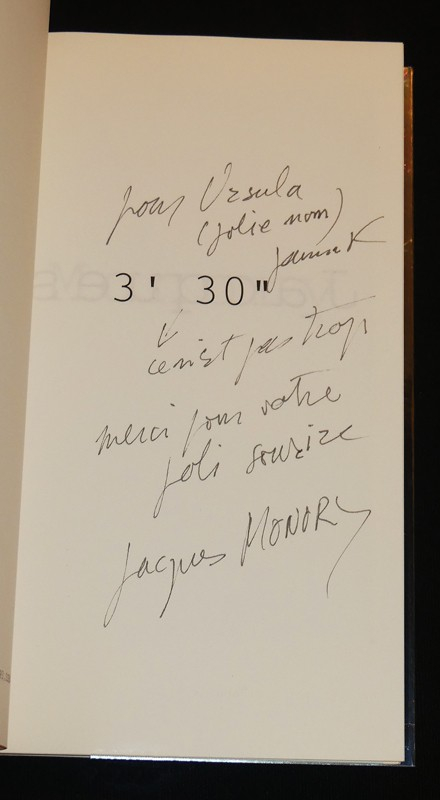 pour Ursula
(jolie nom)
3' 30"
ce n'est pas trop
merci pour votre
joli sourize
Jacques MONORY